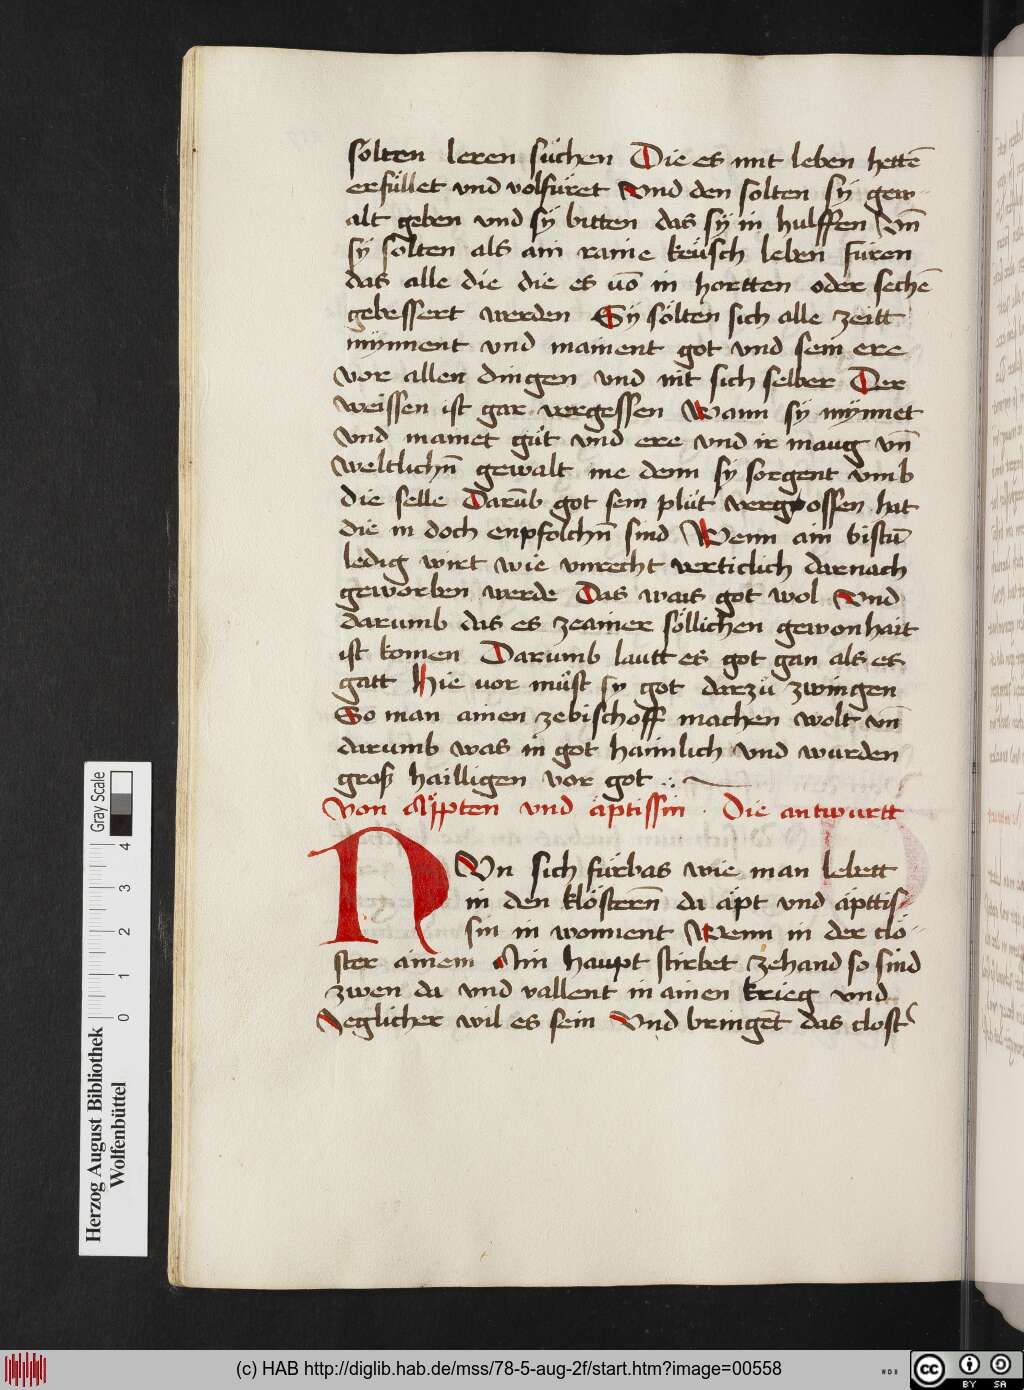 sölten leren süchen Die es mit leben hettē
erfüllet vnd volfüret Vnd den solten sÿ gew
alt geben vnd sÿ bitten das sÿ in hulffen vn̄
sÿ solten als ain raine keüsch leben füren
das alle die die es vō in hortten oder sechē
gebessert werden Sÿ sölten sich alle zeitt
mÿnnent vnd mainent got vnd sein ere
vor allen dingen vnd nit sich selber Der
weissen ist gar vergessen Wann sÿ mÿnnet
vnd mainet güt vnd ere vnd ir maug vn̄
weltlichn̄ gewalt me denn sÿ sorgent vmb
die selle Darūb got sein plüt vergossen hat
die in doch enpfolchn̄ sind Wenn ain bistū
ledig wirt wie vnrecht verticlich darnach
geworben werde Das wais got wol Vnd
darumb das es zeainer söllichen gewonhait
ist komen Darumb lautt es got gan als es
gatt Hie vor müst sy got darzü zwingen
So man ainen zebischoff machen wolt vn̄
darumb was in got haimlich vnd wurden
groß hailligen vor got
Von Äpten vnd äptissin . Die antwurtt
NVn sich fürbas wie man lebett
in den klöstern̄ da äpt vnd äpttis
sin in wonnent Wenn in der clö
ster ainem Ain haupt stirbet zehand so sind
zwen da vnd vallent in ainen krieg vnd
Yeglicher wil es sein Vnd bringēt das clost
Herzog August Bibliothek
Wolfenbüttel
Gray Scale
0 1 2 3 4
(c) HAB http://diglib.hab.de/mss/78-5-aug-2f/start.htm?image=00558
cc BY SA